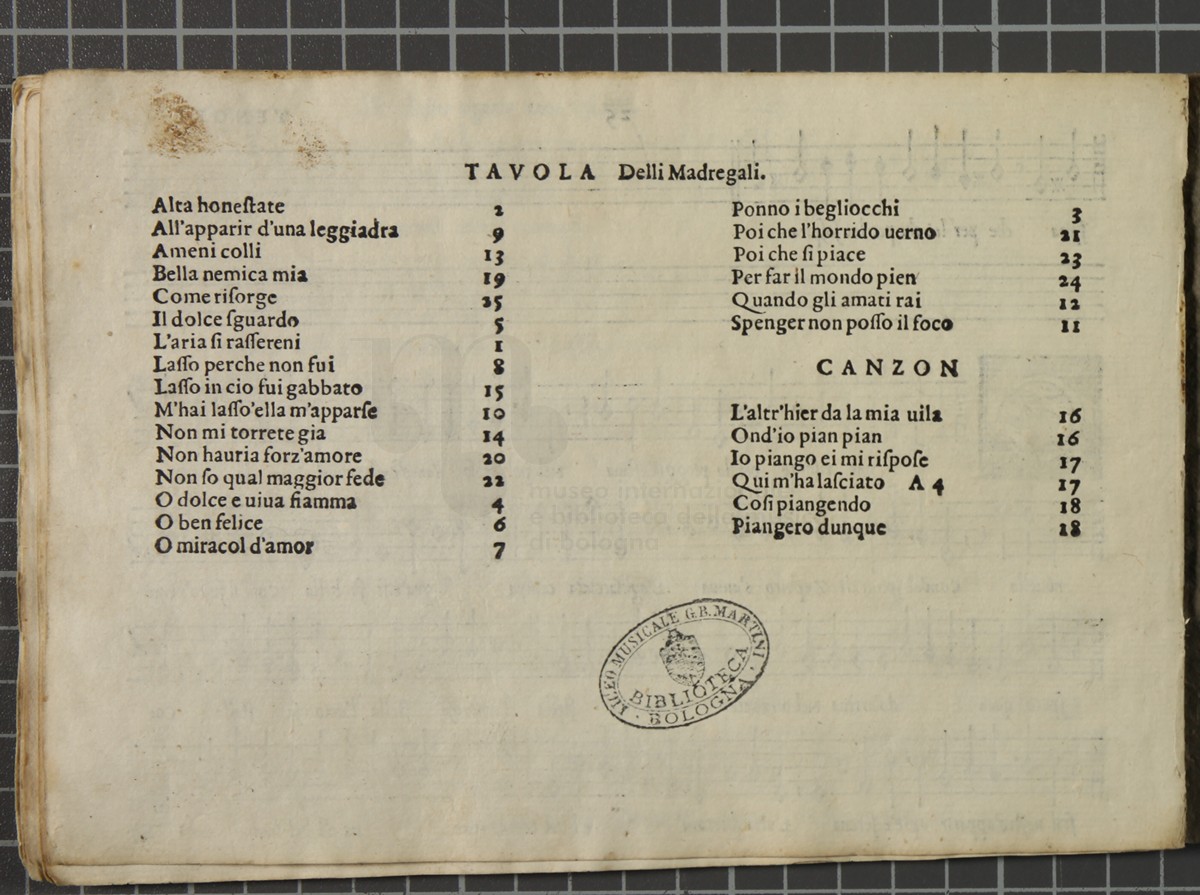 TAVOLA Delli Madregali.
Alta honeſtate 2
All'apparir d'una leggiadra 9
Ameni colli 13
Bella nemica mia 19
Come riſorge 25
Il dolce ſguardo 5
L'aria ſi raſſereni 1
Laſſo perche non fui 8
Laſſo in cio fui gabbato 15
M'hai laſſo'ella m'apparſe 10
Non mi torrete gia 14
Non hauria forz'amore 20
Non ſo qual maggior fede 22
O dolce e uiua fiamma 4
O ben felice 6
O miracol d'amor 7
Ponno i begliocchi 3
Poi che l'horrido uerno 21
Poi che ſi piace 23
Per far il mondo pien 24
Quando gli amati rai 12
Spenger non poſſo il foco 11
CANZON
L'altr'hier da la mia uila 16
Ond'io pian pian 16
Io piango ei mi riſpoſe 17
Qui m'ha laſciato A 4 17
Coſi piangendo 18
Piangero dunque 18
museo internazi
e biblioteca della
di bologna
LICEO MUSICALE G.B. MARTINI
BIBLIOTECA
· BOLOGNA ·